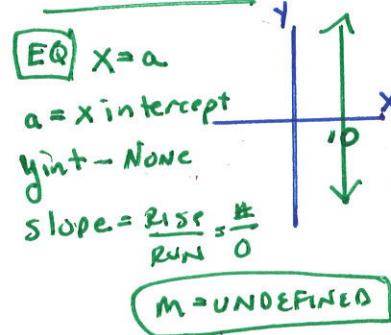 EQ X=a
a = x intercept
yint - NONE
slope = RISE/RUN = #/0
M = UNDEFINED
Y
X
10